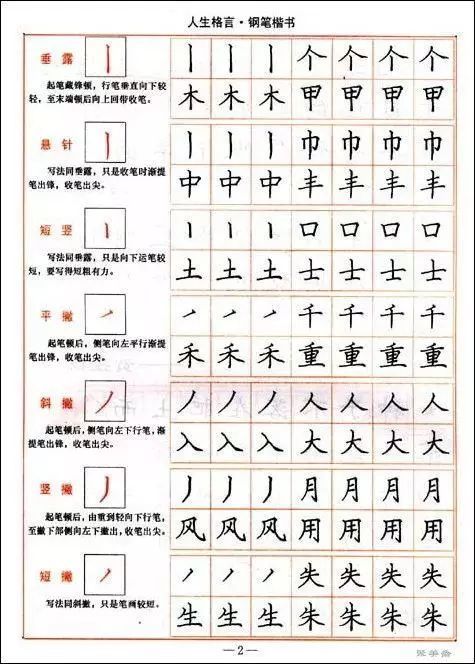 人生格言·钢笔楷书
垂露
起笔藏锋顿，行笔垂直向下较
轻，至末端顿后向上回带收笔。
个 个 个 个
木 木 木 甲 甲 甲 甲
悬针
写法同垂露，只是收笔时渐提
笔出锋，收笔出尖。
巾 巾 巾 巾
中 中 中 丰 丰 丰 丰
短竖
写法同垂露，只是向下运笔较
短，要写得短粗有力。
口 口 口 口
土 土 土 士 士 士 士
平撇
起笔顿后，侧笔向左平行渐提
笔出锋，收笔出尖。
千 千 千 千
禾 禾 禾 重 重 重 重
斜撇
起笔顿后，侧笔向左下行笔，渐
提笔出锋，收笔出尖。
人 人 人 人
入 入 入 大 大 大 大
竖撇
起笔顿后，由重到轻向下行笔，
至撇下部侧向左下撇出，收笔出尖。
月 月 月 月
风 风 风 用 用 用 用
短撇
写法同斜撇，只是笔画较短。
失 失 失 失
生 生 生 朱 朱 朱 朱
—2—